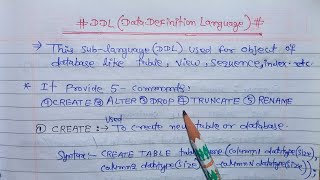 # DDL (Data Definition Language) #
→ This sub-language (DDL) used for object of
database like table, view, sequence, index. etc.
* It Provide 5-commands:
① CREATE ② ALTER ③ DROP ④ TRUNCATE ⑤ RENAME
① CREATE :→ Used To create new table or database.
Syntax:- CREATE TABLE (column1 datatype(size),
column2 datatype(size) datatype(size)